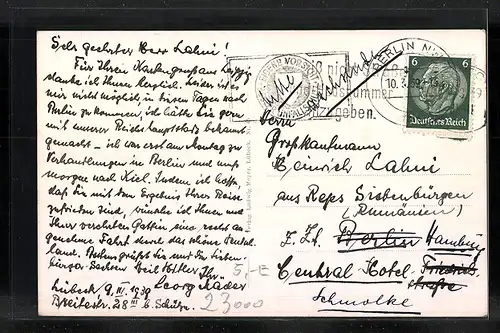 Sehr geehrter Herr Lahni!
Für Ihren Kartengruß aus Leipzig
danke ich Ihnen herzlich. Leider ist es
mir nicht möglich in diesen Tagen nach
Berlin zu kommen, ich hätte Sie gern
mit unserer Reichshauptstadt bekannt
gemacht – ich war erst am Montag zu
Verhandlungen in Berlin und muß
morgen nach Kiel. Indem ich hoffe,
daß Sie mit dem Ergebnis Ihrer Reise
zufrieden sind, wünsche ich Ihnen und
Ihrer verehrten Gattin eine recht an-
genehme Fahrt durch das schöne Deutsch-
land. Hochmgrüßt sie mit der Sieben-
bürger-Sachsen Heil Hitler Ihr
Georg
Lübeck 9. III. 1939
Breitestr. 28 III b.
BERLIN
10.3.39
6 6
Deutsches Reich
nummer
angeben.
Herrn
Großkaufmann
Heinrich Lahni
aus Reps Siebenbürgen
(Rumänien)
z. Zt. Berlin Hamburg
Central Hotel Friedrich-
straße
Schmolke
5,-E
23000